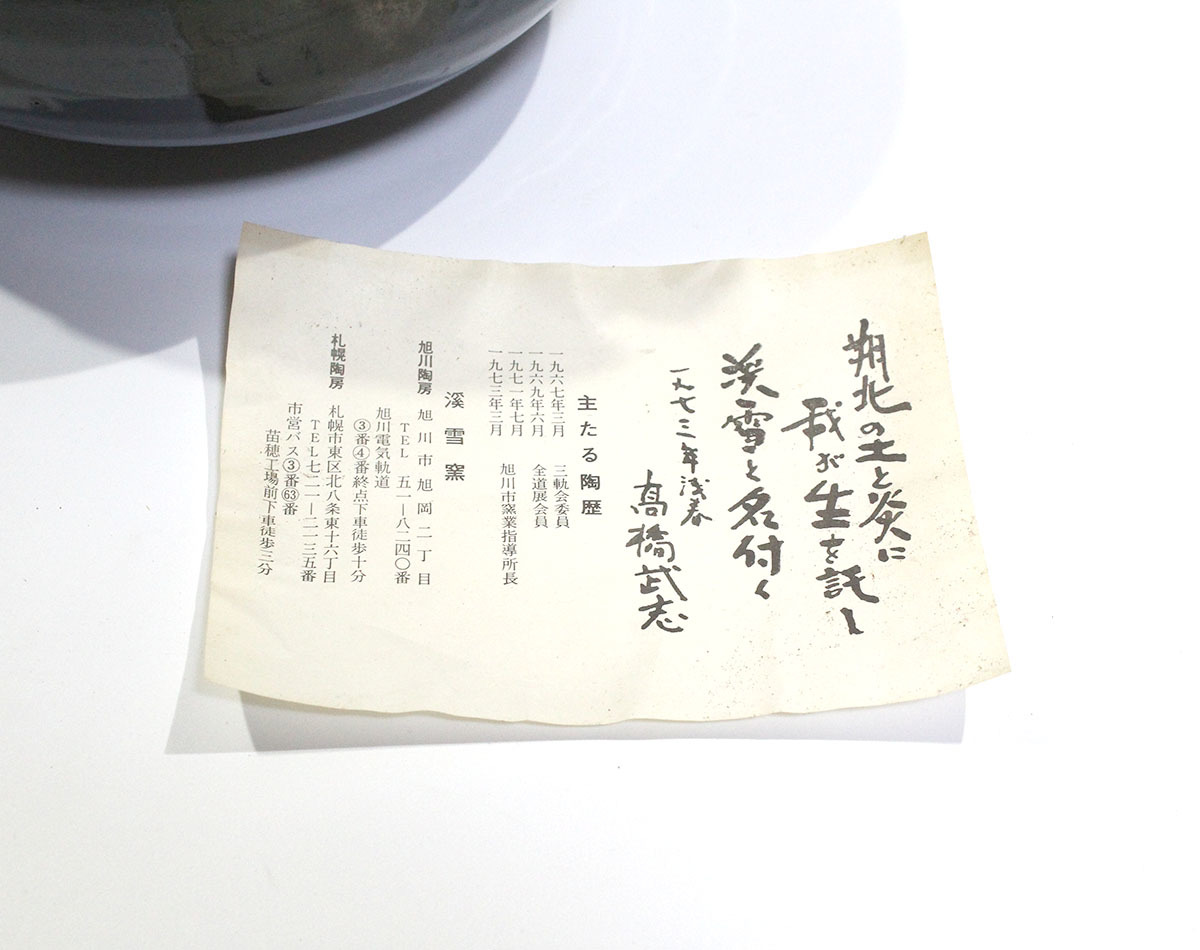 朔北の土と炎に
我が生を託し
渓雪と名付く
一九七三年浅春
高橋武志
主たる陶歴
一九六七年三月　三軌会委員
一九六九年六月　全道展会員
一九七一年七月
一九七三年三月　旭川市窯業指導所長
溪雪窯
旭川陶房　旭川市旭岡二丁目
TEL　五一―八二四〇番
旭川電気軌道
③番④番終点下車徒歩十分
札幌陶房　札幌市東区北八条東十六丁目
TEL七二一―二一三五番
市営バス③番63番
苗穂工場前下車徒歩三分